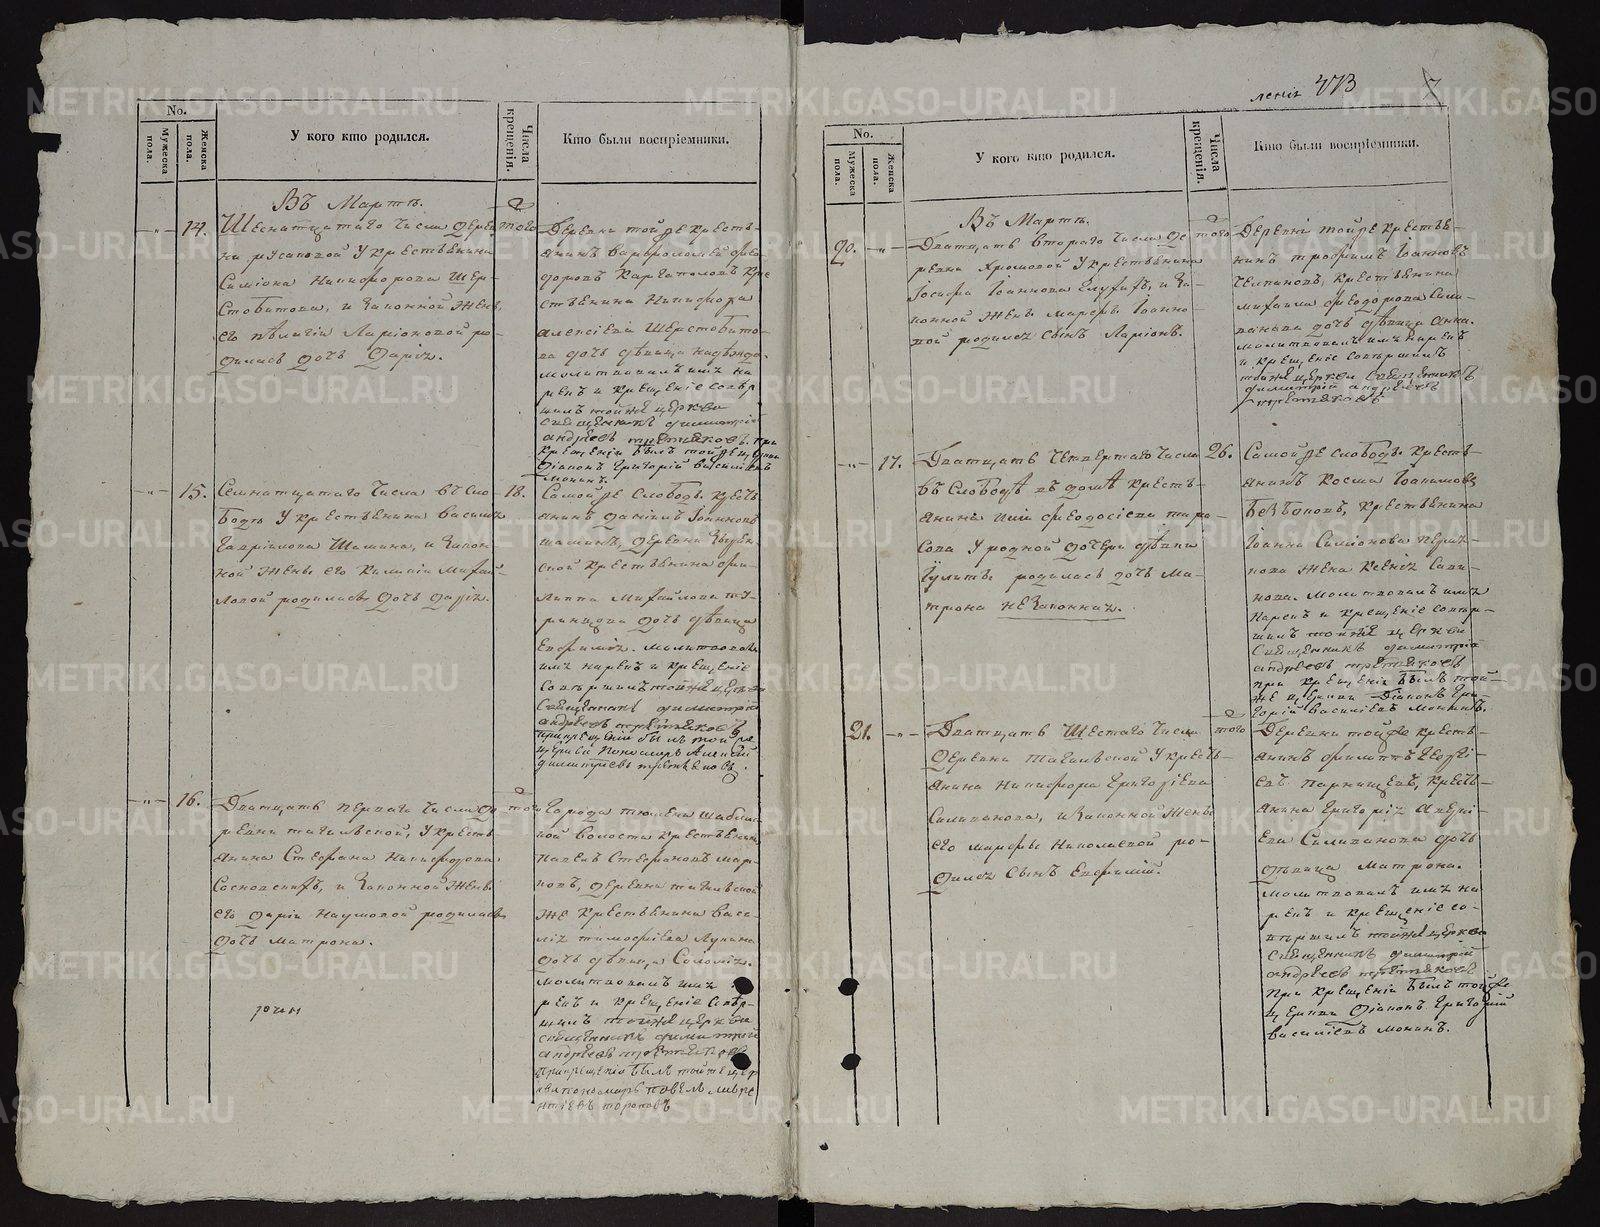 No.
Мужеска пола.
Женска пола.
У кого кто родился.
Числа крещенія.
Кто были воспріемники.
Въ Мартѣ.
14.
Шеснатцатаго числа дерев
того
ни русаковой у крестьянина
Симіона Никифорова Шер-
стобитова, и законной жены
его Пелагіи Ларіоновой ро-
дилась дочь Дарія.
Деревни тойже кресть-
янинъ Варфоломей Фео
доровъ Каргаполовъ кре
стьянина Никифора
Алексіева Шерстобито-
ва дочь дѣвица Надѣжда.
молитвовалъ имя на
рекъ и крещеніе совер
шилъ тойже церкви
священникъ Димитрій
андреевъ третьяковъ. при
крещеніи былъ тойже церкви
Діаконъ Григорій Василіевъ
Мокинъ.
15.
Семнатцатаго числа въ сло-
18.
бодѣ у крестьянина Василья
Гавріилова Шамина, и закон-
ной жены его Киликіи Михай-
ловой родилась дочь Дарія.
Самойже слободы кресть
янинъ Даніилъ Іоанновъ
Шаминъ, деревни
ской крестьянина Фи-
липпа Михайлова
дочь дѣвица
Евфимія. молитвовалъ
имя нарекъ и крещеніе
совершилъ тойже церкви
священникъ Димитрій
андреевъ третьяковъ
при крещеніи былъ тойже
церкви пономарь Алексій
Димитріевъ
16.
Дватцать перваго числа де
того
ревни тагильской, у кресть
янина Стефана Никифорова
Сосновскихъ, и законной жены
его Даріи Наумовой родилась
дочь Матрона.
Города тюмени
ской волости крестьянинъ
Павелъ Стефановъ Мар-
ковъ, деревни тагильской
же крестьянина Васи-
лія тимофіева Лукина
дочь дѣвица Соломія.
молитвовалъ имя
рекъ и крещеніе совер-
шилъ тойже церкви
священникъ Димитрій
андреевъ третьяковъ
при крещеніи былъ тойже цер
кви пономарь Павелъ
тороповъ
леніи 473
7
No.
Мужеска пола.
Женска пола.
У кого кто родился.
Числа крещенія.
Кто были воспріемники.
Въ Мартѣ.
20.
Дватцать втораго числа де
того
ревни Хромовой у крестьянина
Іосифа Іоаннова Елухихъ, и за-
конной жены Марфы Іоанно-
вой родился сынъ Ларіонъ.
Деревни тойже крестья-
нинъ трофимъ Іоанновъ
крестьянина
Михаила Феодорова Сили-
ванова дочь дѣвица Анна.
молитвовалъ имя нарекъ
и крещеніе совершилъ
тойже церкви священникъ
Димитрій андреевъ
третьяковъ
17.
Дватцать четвертаго числа
26.
въ слободѣ въ домѣ кресть-
янина Феодосіева тара-
сова у родной дочери дѣвки
Іулиты родилась дочь Ма-
трона незаконная.
Самойже слободы кресть-
янинъ Косма Іоакимовъ
крестьянина
Іоанна Симіонова
жена Ксенія Сави-
нова. Молитвовалъ имя
нарекъ и крещеніе совер-
шилъ тойже церкви
священникъ Димитрій
андреевъ третьяковъ
при крещеніи былъ той-
же церкви Діаконъ Гри-
горій Василіевъ Мокинъ.
21.
Дватцать шестаго числа
того
деревни Тагильской у кресть-
янина Никифора Григоріева
Силиванова, и законной жены
его Марфы Николаевой ро-
дился сынъ Евфимій.
Деревни тойже кресть-
янинъ Филиппъ Георгі-
евъ кресть-
янина Григорія
ева Силиванова дочь
дѣвица Матрона.
молитвовалъ имя на
рекъ и крещеніе со-
вершилъ тойже церкви
священникъ Димитрій
андреевъ третьяковъ
при крещеніи былъ тойже
церкви Діаконъ Григорій
Василіевъ Мокинъ.
METRIKI.GASO-URAL.RU